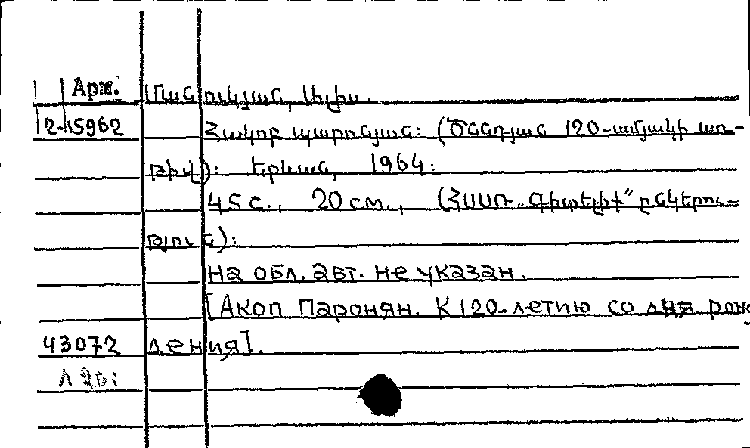 Арм.
Մանուկյան, Ալիս.
12-15962
Հակոբ պարոնյան: (Ծննդյան 120-ամյակի առ-
թիվ): Երևան, 1964:
45 с., 20 см., (ՀՍՍՌ „Գիտելիք“ ընկերու-
թյուն):
На обл. авт. не указан.
[Акоп Паронян. К 120-летию со дня рож
43072 дения].